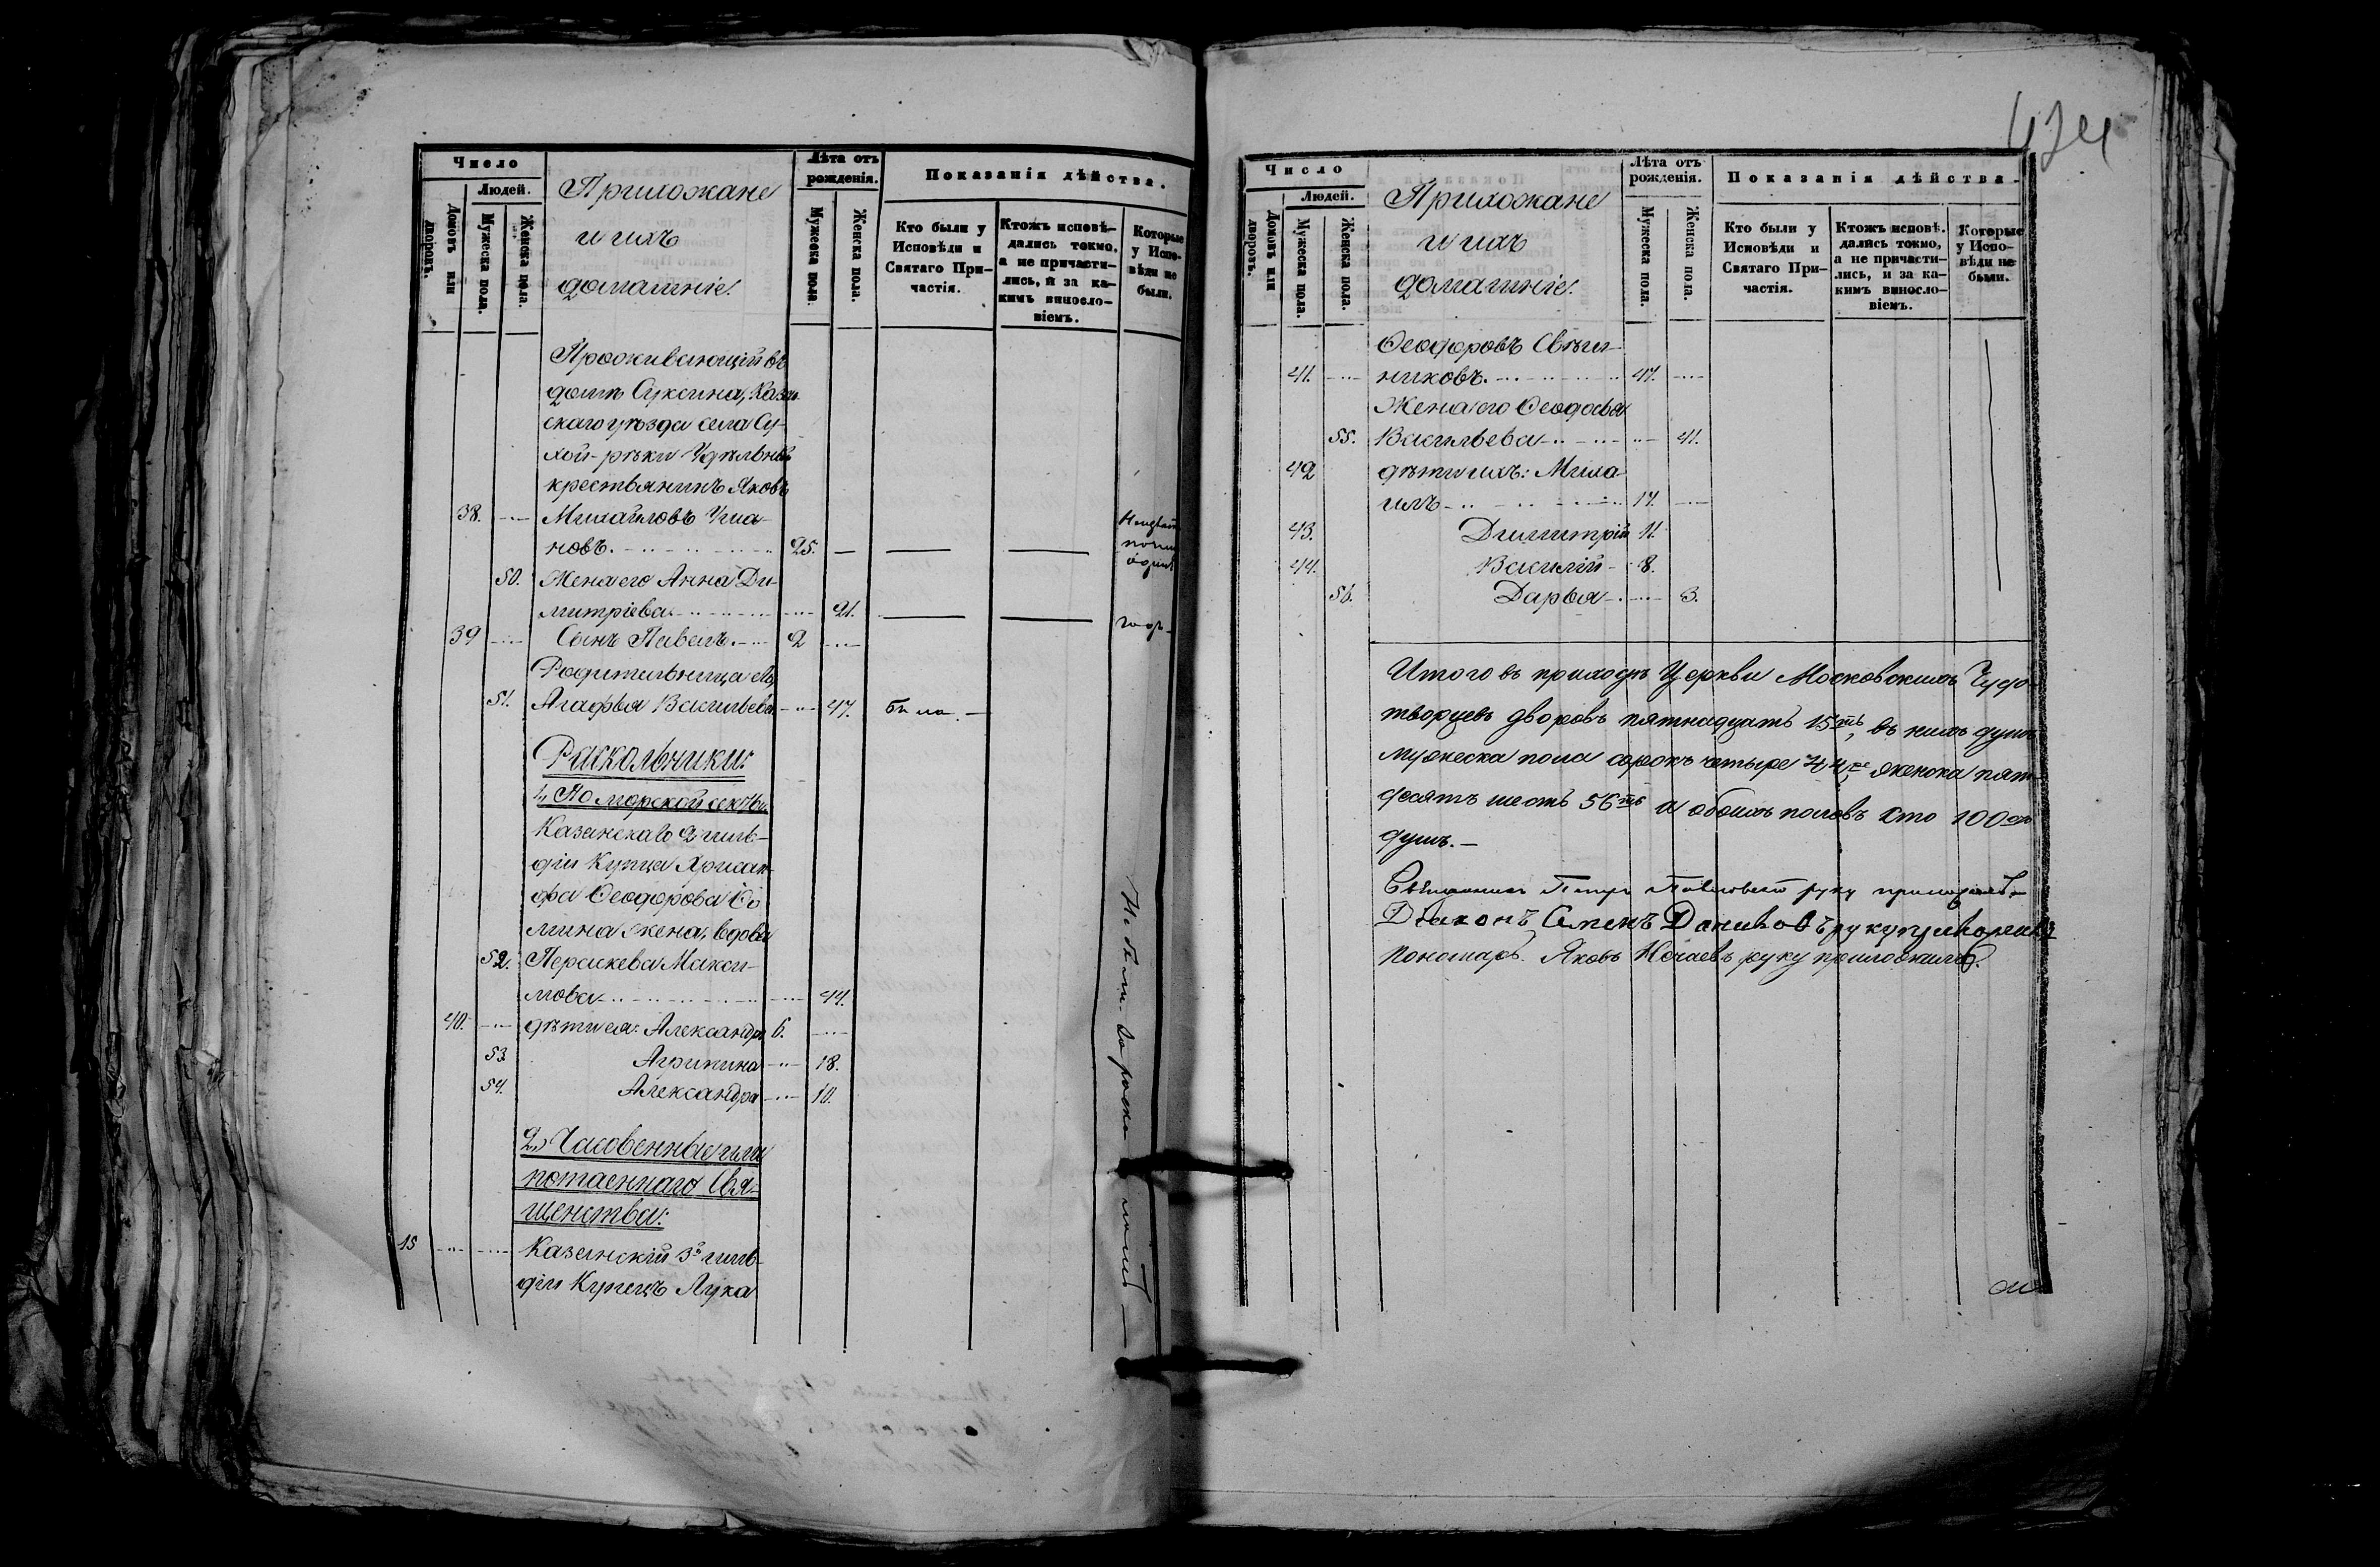 Число
Людей.
Домовъ или дворовъ.
Мужеска пола.
Женска пола.
Прихожане
и ихъ
домашніе.
Лѣта отъ рожденія.
Мужеска пола.
Женска пола.
Показанія дѣйства.
Кто были у Исповѣди и Святаго При-частія.
Ктожъ исповѣ-дались токмо, а не причасти-лись, и за ка-кимъ виносло-віемъ.
Которые у Испо-вѣди не были.
Проживающій въ
домѣ Суксина, Казан
скаго уѣзда села Су-
хой-рѣки Удѣльный
крестьянинъ Яковъ
38. Михайловъ
новъ. 25. — — —
50. Жена его Анна Ди-
митріева 21. — —
39 Сынъ Павелъ. 2
Родительница
51. Агафья Васильева 47. была. —
Раскольники:
1, Поморской секты
Казанскаго 2 гиль-
діи Купца Хрисан-
фа Ѳеодорова Ѳо
мина жена, вдова
52. Пераскева Макси-
мова 44.
40. дѣти ея: Александръ 6.
53. Агрипина 18.
54. Александра 10.
2, Часовенные или
потаеннаго Свя-
щенства:
15 Казанскій 3й гиль-
діи Купецъ Лука
Не были
434
Число
Людей.
Домовъ или дворовъ.
Мужеска пола.
Женска пола.
Прихожане
и ихъ
домашніе.
Лѣта отъ рожденія.
Мужеска пола.
Женска пола.
Показанія дѣйства.
Кто были у Исповѣди и Святаго При-частія.
Ктожъ исповѣ-дались токмо, а не причасти-лись, и за ка-кимъ виносло-віемъ.
Которые у Испо-вѣди не были.
Ѳеодоровъ Свѣш-
41. никовъ. 47.
Жена его Ѳеодосья
55. Васильева 41.
42 дѣти ихъ: Миха
илъ 17.
43. Димитрій 11.
44. Василій 8.
56. Дарья 3.
Итого въ приходѣ Церкви Московскихъ Чудо-
творцевъ дворовъ пятнадцать 15ть, въ нихъ душъ
мужеска пола сорокъ четыре 44ре женска пять-
десятъ шесть 56ть а обоихъ половъ сто 100
душъ. —
Священникъ Петръ руку приложилъ. —
Діаконъ Семенъ Даниловъ руку приложилъ
Пономарь Яковъ Нечаевъ руку приложилъ.